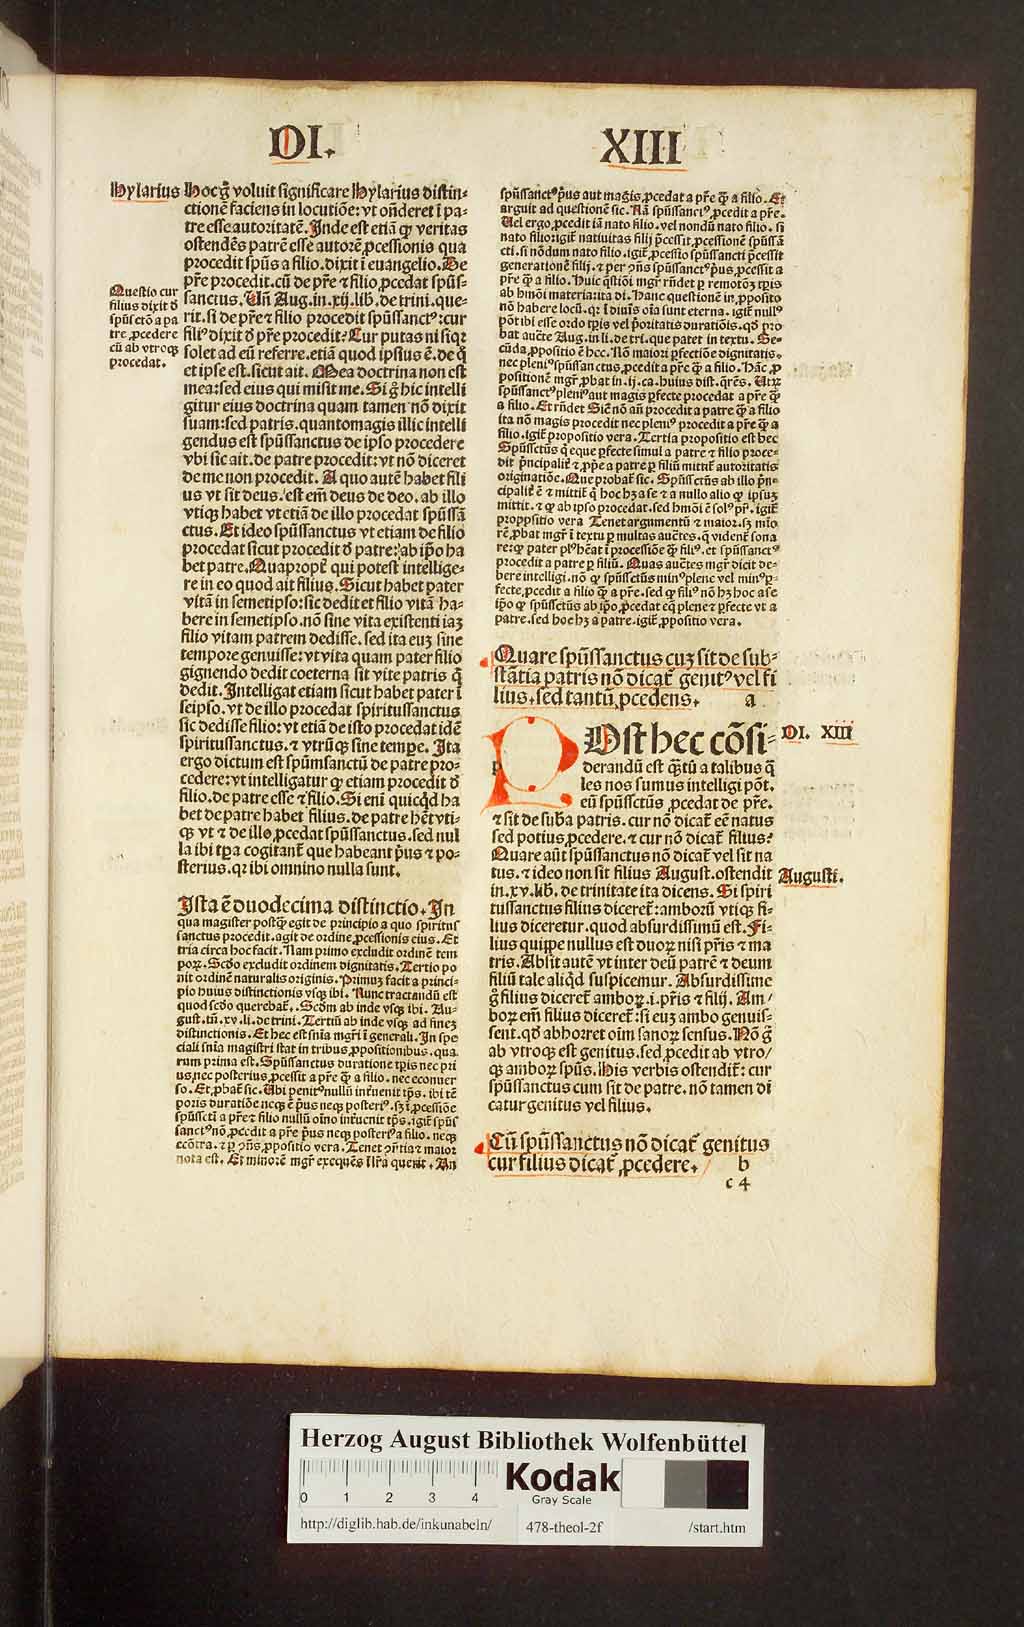 DI. XIII
Hylarius
Hoc g̃ voluit significare Hylarius distin⸗
ctionē faciens in locutiōe: vt on̄deret ī pa⸗
tre esse autoritatē. Inde est etiā ꝙ veritas
ostendēs patrē esse autorē ꝓcessionis qua
procedit spūs a filio. dixit ī euangelio. De
pr̄e procedit. cū de pr̄e ⁊ filio ꝓcedat spūs⸗
sanctus. Un̄ Aug. in. xij. lib. de trini. que⸗
rit. si de pr̄e ⁊ filio procedit spūssanctꝰ: cur
filiꝰ dixit d̄ pr̄e procedit? Cur putas ni siqꝫ
solet ad eū referre. etiā quod ipsius ē. de q̊
et ipse est. sicut ait. Mea doctrina non est
mea: sed eius qui misit me. Si g̊ hic intelli
gitur eius doctrina quam tamen nō dixit
suam: sed patris. quantomagis illic intelli
gendus est spūssanctus de ipso procedere
vbi sic ait. de patre procedit: vt nō diceret
de me non procedit. A quo autē habet fili
us vt sit deus. est em̄ deus de deo. ab illo
vtiqꝫ habet vt etiā de illo procedat spūssā
ctus. Et ideo spūssanctus vt etiam de filio
procedat sicut procedit d̄ patre: ab ip̄o ha
bet patre. Quapropt̄ qui potest intellige⸗
re in eo quod ait filius. Sicut habet pater
vitā in semetipso: sic dedit et filio vitā ha⸗
bere in semetipso. nō sine vita existenti iaꝫ
filio vitam patrem dedisse. sed ita euꝫ sine
tempore genuisse: vt vita quam pater filio
gignendo dedit coeterna sit vite patris q̄
dedit. Intelligat etiam sicut habet pater ī
seipso. vt de illo procedat spiritussanctus
sic dedisse filio: vt etiā de isto procedat idē
spiritussanctus. ⁊ vtrūqꝫ sine temp̄e. Ita
ergo dictum est spūmsanctū de patre pro⸗
cedere: vt intelligatur ꝙ etiam procedit d̄
filio. de patre esse ⁊ filio. Si enī quicq̄d ha
bet de patre habet filius. de patre hēt vti⸗
qꝫ vt ⁊ de illo ꝓcedat spūssanctus. sed nul
la ibi tp̄a cogitant̄ que habeant p̄us ⁊ po⸗
sterius. qꝛ ibi omnino nulla sunt.
Questio cur
filius dixit d̄
spūscтō a pa
tre ꝓcedere
cū ab vtroqꝫ
procedat.
Ista ē duodecima distinctio. In
qua magister postq̄ egit de principio a quo spiritus
sanctus procedit. agit de ordine ꝓcessionis eius. Et
tria circa hoc facit. Nam primo excludit ordinē tem
poꝝ. Scdo excludit ordinem dignitatis. Tertio po
nit ordinē naturalis originis. Primuꝫ facit a princi⸗
pio huius distinctionis vsqꝫ ibi. Nunc tractandū est
quod scdo querebat̄. Scdm ab inde vsqꝫ ibi. Au⸗
gust. tn̄. xv. li. de trini. Tertiū ab inde vsqꝫ ad fineꝫ
distinctionis. Et hec est snīa mgr̄i ī generali. In spe
ciali snīa magistri stat in tribus ꝓpositionibus. qua
rum prima est. Spūssanctus duratione tp̄is nec pri
us nec posterius ꝓcessit a pr̄e q̄ a filio. nec econuer
so. Et ꝓbat̄ sic. Ubi penitꝰ nullū intruenit tp̄s. ibi tē
poris duratiōe neqꝫ ē p̄us neqꝫ posteriꝰ. sꝫ ī ꝓcessiōe
spūssctī a pr̄e ⁊ filio nullū oīno intruenit tp̄s. igit̄ spūs
sanctꝰ nō ꝓcedit a pr̄e p̄us neqꝫ posteriꝰ a filio. neqꝫ
ecōtra. ⁊ ꝑ ꝯn̄s ꝓpositio vera. Tenet ꝯn̄tia ⁊ maior
nota est. Et minorē mgr̄ exequēs lr̄a querit. An
spūssanctꝰ p̄us aut magis ꝓcedat a pr̄e q̄ a filio. Et
arguit ad questionē sic. Nā spūssanctꝰ ꝓcedit a pr̄e.
Uel ergo ꝓcedit iā nato filio. vel nondū nato filio. si
nato filio: igit̄ natiuitas filij p̄cessit ꝓcessionē spūssā
cti. si nōdum nato filio. igit̄ ꝓcessio spūssancti p̄cessit
generationē filij. ⁊ per ꝯn̄s spūssanctꝰ p̄us ꝓcessit a
pr̄e q̄ a filio. Huic q̄stiōi mgr̄ rn̄det ꝑ remotōꝫ tp̄is
ab hmōi materia: ita di. Hanc questionē in ꝓposito
nō habere locū. qꝛ ī diuīs oīa sunt eterna. igit̄ nullꝰ
pōt ibi esse ordo tp̄is vel p̄oritatis durationis. qd̄ pro
bat aucte Aug. in li. de tri. que patet in textu. Se⸗
cūda ꝓpositio ē hec. Nō maiori ꝑfectiōe dignitatis.
nec pleniꝰ spūssanctus ꝓcedit a pr̄e q̄ a filio. Hāc ꝓ
positionē mgr̄ ꝓbat in. ij. ca. huius dist. q̄rēs. Utꝝ
spūssanctꝰ pleniꝰ aut magis ꝑfecte procedat a pr̄e q̄
a filio. Et rn̄det Sic̄ nō an̄ procedit a patre q̄ a filio
ita nō magis procedit nec pleniꝰ procedit a pr̄e q̄ a
filio. igit̄ propositio vera. Tertia propositio est hec
Spūssctūs q̄ eque ꝑfecte simul a patre ⁊ filio proce⸗
dit p̄ncipalit̄ ⁊ ꝓp̄e a patre ꝑ filiū mittit̄ autoritatis
originatiōe. Que probat̄ sic. Spūssctūs ab illo p̄n⸗
cipalit̄ ē ⁊ mittit̄ q̄ hoc hꝫ a se ⁊ a nullo alio ꝙ ipsuꝫ
mittit. ⁊ ꝙ ab ipso procedat. sed hmōi ē solꝰ pr̄. igit̄
proppsitio vera Tenet argumentū ⁊ maior. sꝫ mīo
rē ꝓbat mgr̄ ī textu ꝑ multas auctes. q̄ vident̄ sona
re: ꝙ pater plꝰ hēat ī processiōe q̄ filiꝰ. et spūssanctꝰ
procedit a patre ꝑ filiū. Quas auctes mgr̄ dicit de⸗
bere intelligi. nō ꝙ spūssctūs minꝰ plene vel minꝰ ꝑ⸗
fecte ꝓcedit a filio q̄ a pr̄e. sed ꝙ filiꝰ nō hꝫ hoc a se
ip̄o ꝙ spūssctūs ab ip̄o ꝓcedat eq̄ plene ⁊ ꝑfecte vt a
patre. sed hoc hꝫ a patre. igit̄ ꝓpositio vera.
Quare spūssanctus cuꝫ sit de sub⸗
stātia patris nō dicat̄ genitꝰ vel fi
lius. sed tantū ꝓcedens. a
DI. XIII
p
Ost hec cōsi⸗
derandū est q̄tū a talibus q̄
les nos sumus intelligi pōt.
cū spūssctūs ꝓcedat de pr̄e.
⁊ sit de suba patris. cur nō dicat̄ eē natus
sed potius ꝓcedere. ⁊ cur nō dicat̄ filius?
Quare aūt spūssanctus nō dicat̄ vel sit na
tus. ⁊ ideo non sit filius August. ostendit
in. xv. lib. de trinitate ita dicens. Si spiri
tussanctus filius diceret̄: amborū vtiqꝫ fi⸗
lius diceretur. quod absurdissimū est. Fi⸗
lius quippe nullus est duoꝝ nisi pr̄is ⁊ ma
tris. Absit autē vt inter deū patrē ⁊ deum
filiū tale aliq̄d suspicemur. Absurdissime
g̊ filius diceret̄ amboꝝ. i. pr̄is ⁊ filij. Am/
boꝝ em̄ filius diceret̄: si euꝫ ambo genuis⸗
sent. qd̄ abhorret oīm sanoꝝ sensus. Nō g̊
ab vtroqꝫ est genitus. sed ꝓcedit ab vtro/
qꝫ amboꝝ spūs. His verbis ostendit̄: cur
spūssanctus cum sit de patre. nō tamen di
catur genitus vel filius.
Augusti.
Cū spūssanctus nō dicat̄ genitus
cur filius dicat̄ ꝓcedere. b
c 4
Herzog August Bibliothek Wolfenbüttel
0 1 2 3 4
Kodak
Gray Scale
http://diglib.hab.de/inkunabeln/ 478-theol-2f /start.htm